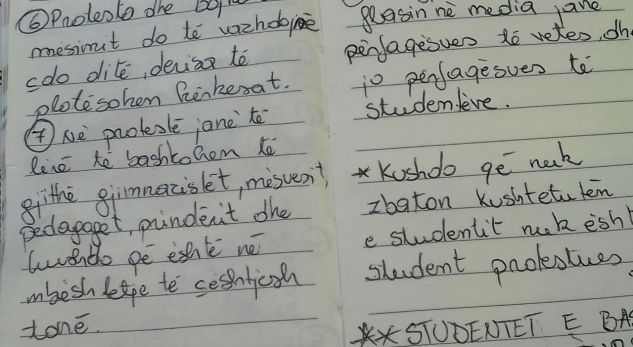 ⑥ Protesta dhe bojkoti
mesimit do të vazhdojnë
cdo ditë, derisa të
plotësohen kërkesat.
⑦ Në protestë janë të
lirë të bashkohen të
gjithë gjimnazistët, mësuesit,
pedagogët, prindërit dhe
kushdo që është në
mbështetje të çështjesh
tonë.
flasin në media janë
përfaqësues të vetes, dhe
jo përfaqësues të
studentëve.
* Kushdo që nuk
zbaton Kushtetutën
e studentit nuk ësht
student protestues
** STUDENTET E BAS